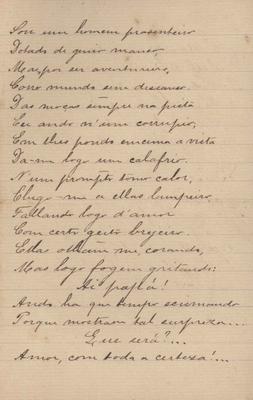 Sou um homem prasenteiro
Dotado de genio manso,
Mas, por ser aventureiro,
Corro mundo sem descanso.
Das moças sempre na pista
Eu ando n'um corrupio,
Em lhes pondo emcima a vista
Dá-me logo um calafrio.
N'um prompto tomo calor,
Chego-me a ellas lampeiro,
Fallando logo d'amor
Com certo geito brejeiro.
Ellas olham-me, corando,
Mas logo fogem gritando:
Ai papá!
Ando ha que tempo scismando
Porque mostram tal surpreza...
Que será?...
Amor, com toda a certeza!...